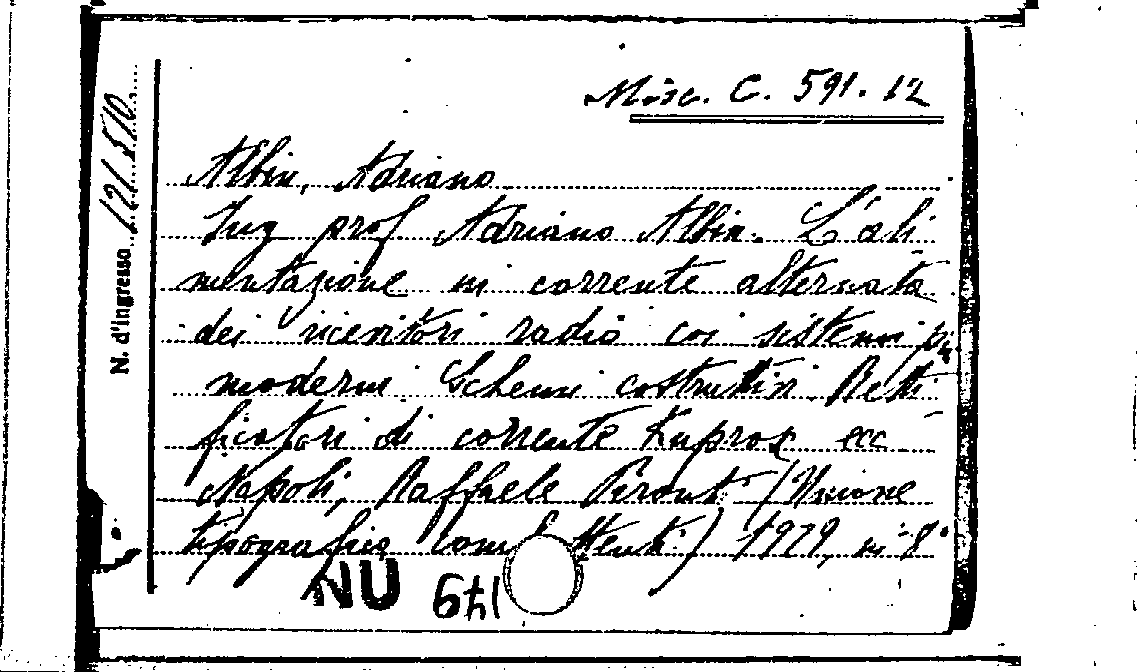 Misc. C. 591. 12
N. d'ingresso 121510
Albin, Adriano
Ing prof Adriano Albin. L'ali
mentazione in corrente alternata
dei ricevitori radio coi sistemi più
moderni Schemi costruttivi Retti
ficatori di corrente Kuprox ecc
Napoli, Raffaele Pironti (Unione
tipografica combattenti) 1929, in 8°
NU 649